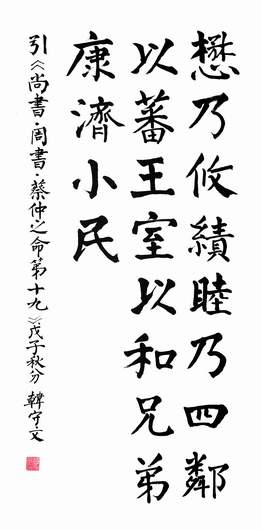 懋乃攸績睦乃四鄰
以蕃王室以和兄弟
康濟小民
引《尚書·周書·蔡仲之命第十九》戊子秋分 韓守文